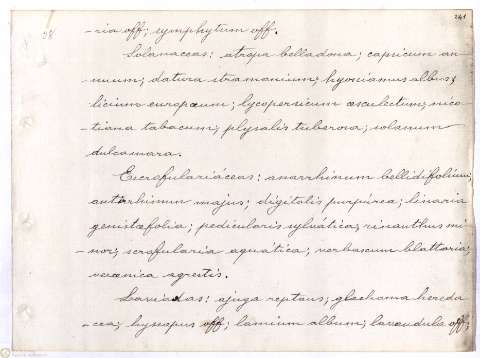 241
28
-ria off; symphytum off.
Solanaceas: atropa belladona; capsicum an-
nuum; datura stramonium; hyosciamus albus;
licium europæum; lycopersicum æsculectum; nico-
-tiana tabacum; physalis tuberosa; solanum
dulcamara.
Escrofulariáceas: anarrhinum bellidifolium;
antirrhinun majus; digitalis purpúrea; linaria
genistæfolia; pedicularis sylvática; rinanthus mi-
-nor; scrofularia aquática; verbascum blattaria;
veronica agrestis.
Laviadas: ajuga reptans; glechoma hereda
-cea; hyssopus off; lamium album; lavandula off;